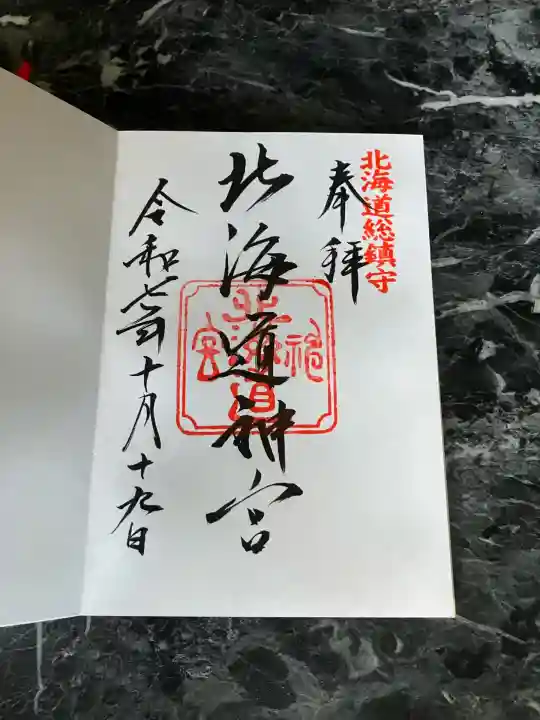 北海道総鎮守
奉拝
北海道神宮
令和七年十月十九日
北海道神宮